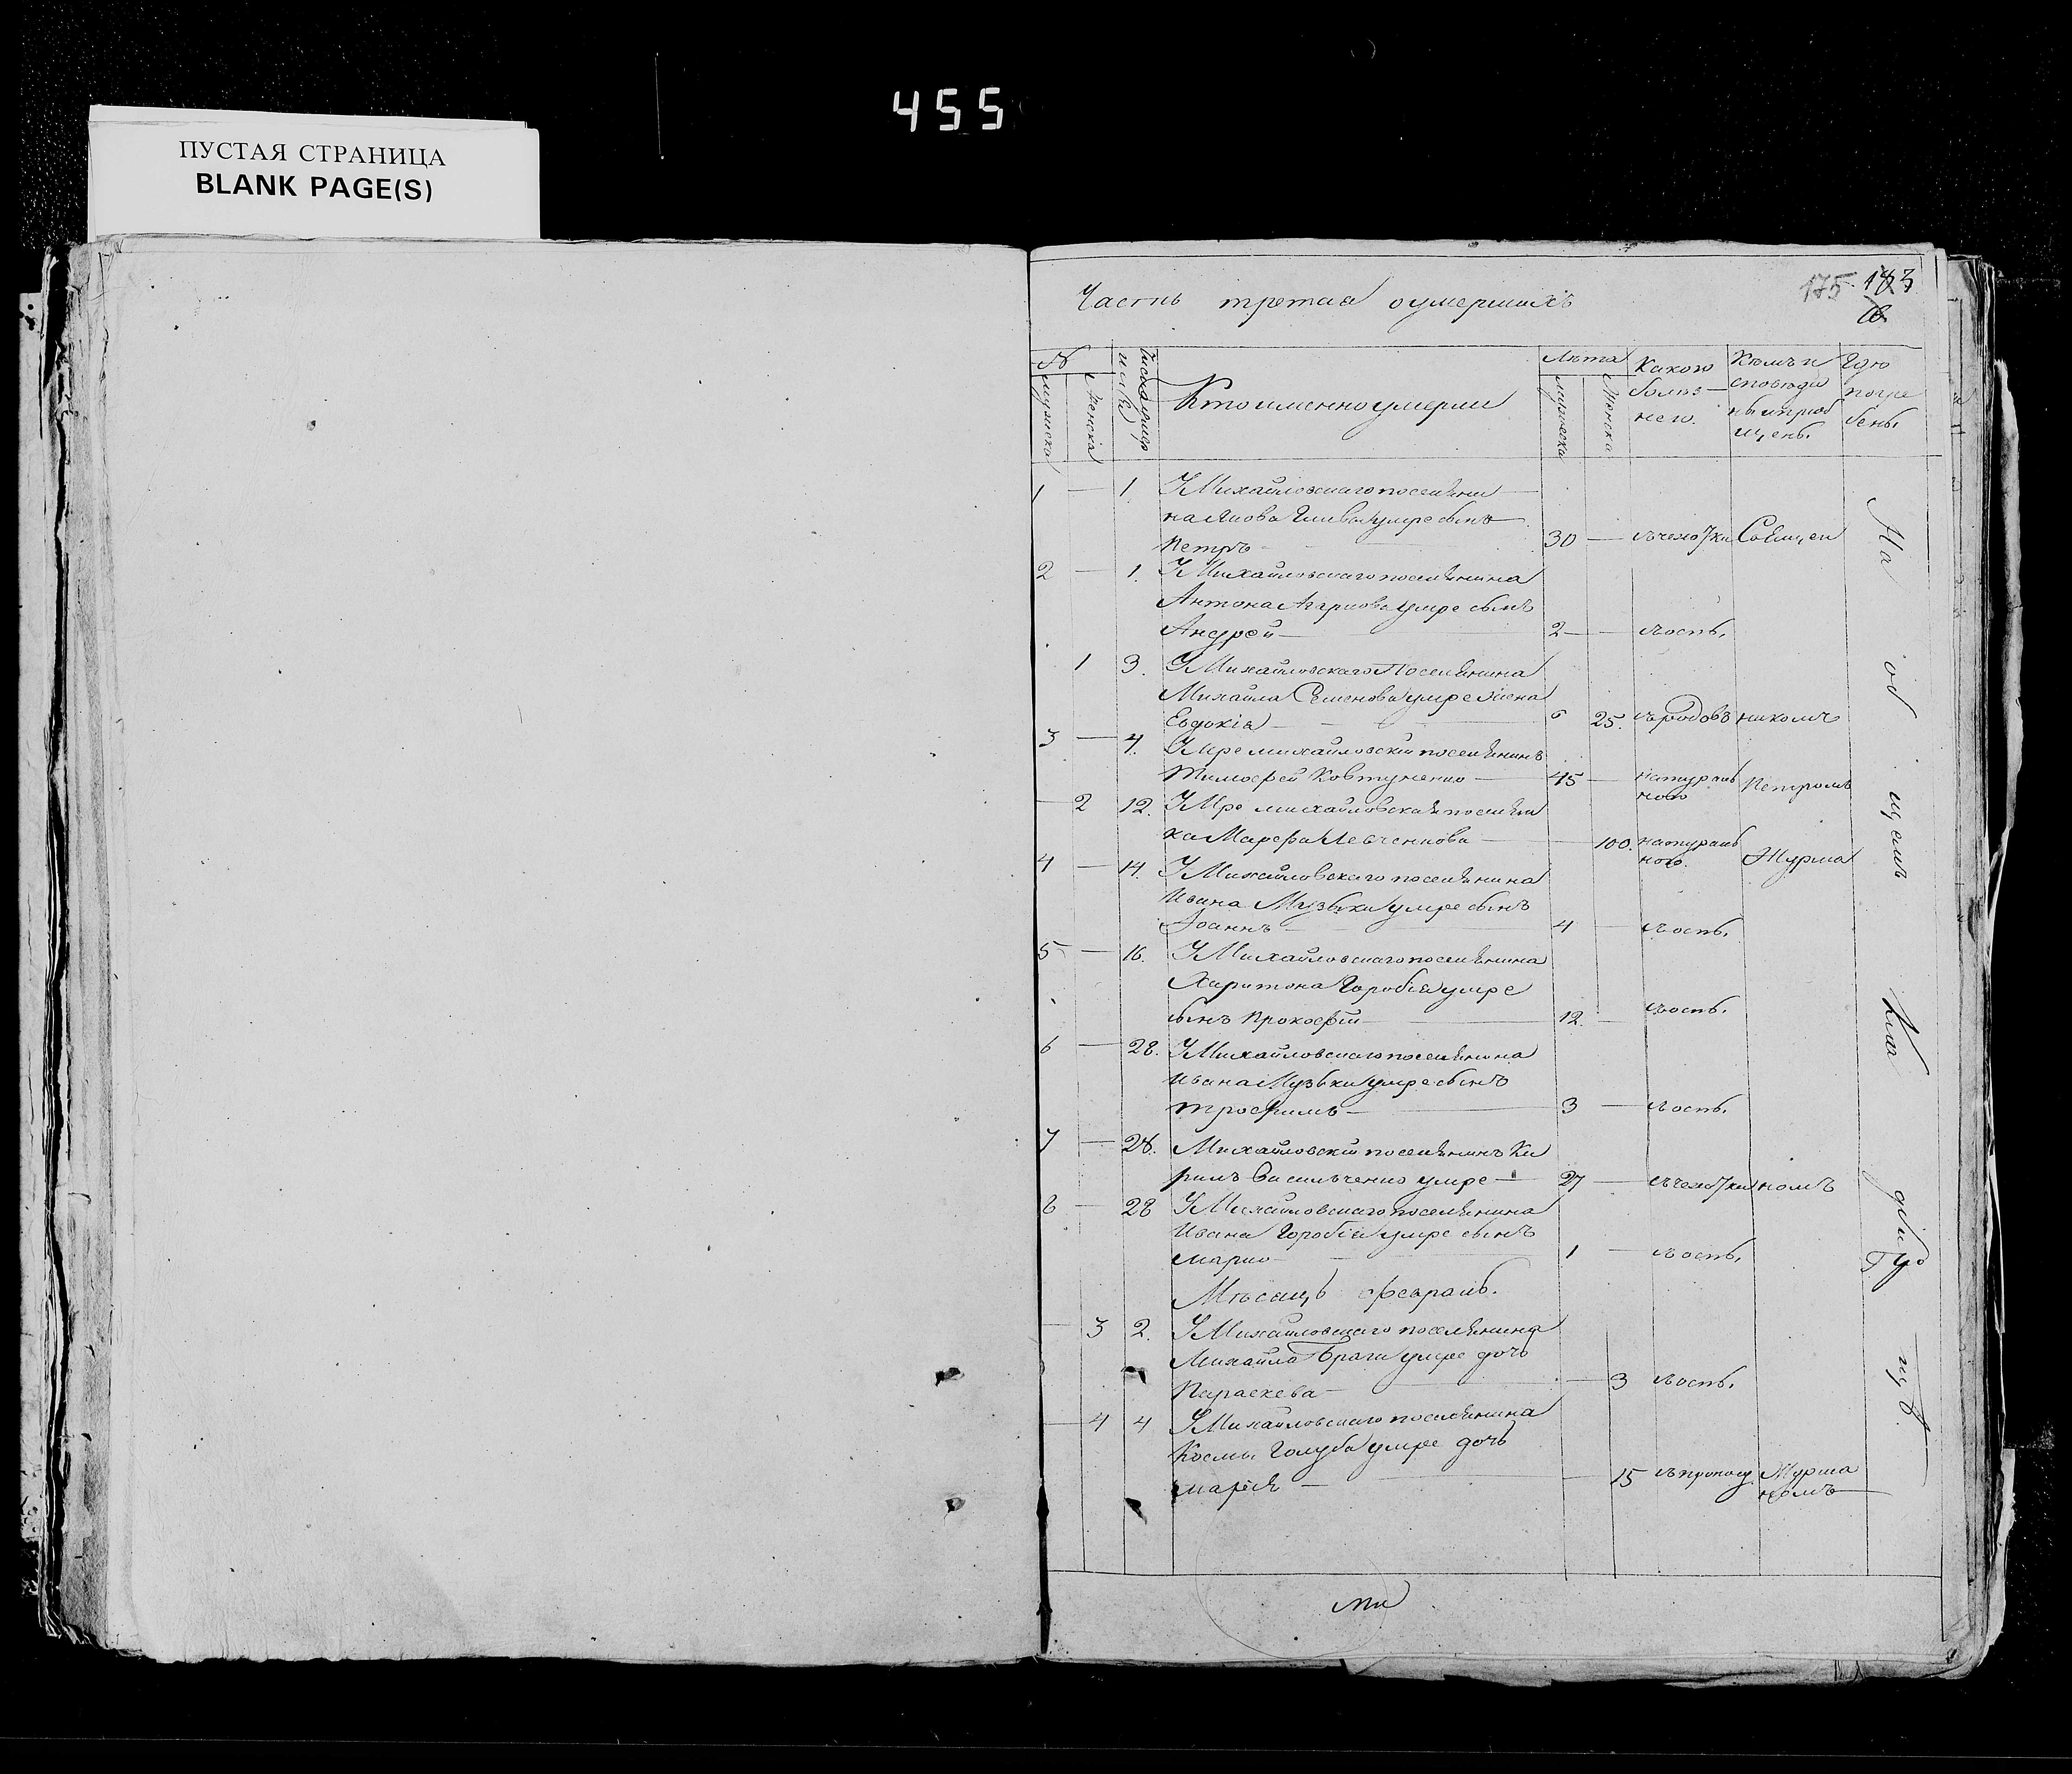 455
ПУСТАЯ СТРАНИЦА
BLANK PAGE(S)
175 183
Часть третая оумершихъ
№
мужеска
женска
Кто именно умерли
Лѣта
мужеска
женска
Какою
болѣз-
нею.
Кѣмъ и
сповѣда
ны и приоб
щены
Гдѣ
погре
бены
1 — 1. УМихайловскаго поселяни
на умре сынъ
Петръ — 30 — Священ
2 — 1. УМихайловскаго поселянина
Антона умре сынъ
Андрей — 2 — въоспѣ.
1 3. УМихайловскаго Поселянина
Михайла Семенова умре жена
Евдокіа — 25. въродовъ
3 — 4. Умре михайловскій поселянинъ
Тимофей Ковтуненко — 45 — натураль
ною Петромъ
— 2 12. Умре михайловская поселян
ка Марфа Левченкова — 100. натураль
ною. Журма
4 — 14. УМихайловскаго поселянина
Ивана Музыки умре сынъ
Іоаннъ — 4 — въоспѣ.
5 — 16. УМихайловскаго поселянина
Харитона Горобія умре
сынъ Прокофій — 12. — въоспѣ.
6 — 28. УМихайловскаго поселянина
Ивана Музыки умре сынъ
Трофимъ — 3 — въоспѣ.
7 — 28. Михайловскій поселянинъ Ки
рилъ Василченко умре — 27 — комъ
8 — 28 УМихайловскаго поселянина
Ивана Горобія умре сынъ
марко — 1 — въоспѣ.
Мѣсяцъ февраль.
— 3 2. УМихайловскаго поселянина
Михайла Браги умре дочь
Параскева — 3 въоспѣ.
— 4 4 УМихайловскаго поселянина
Космы Голуба умре дочь
марія — 15 Журма
комъ
На об щемъ кла дби